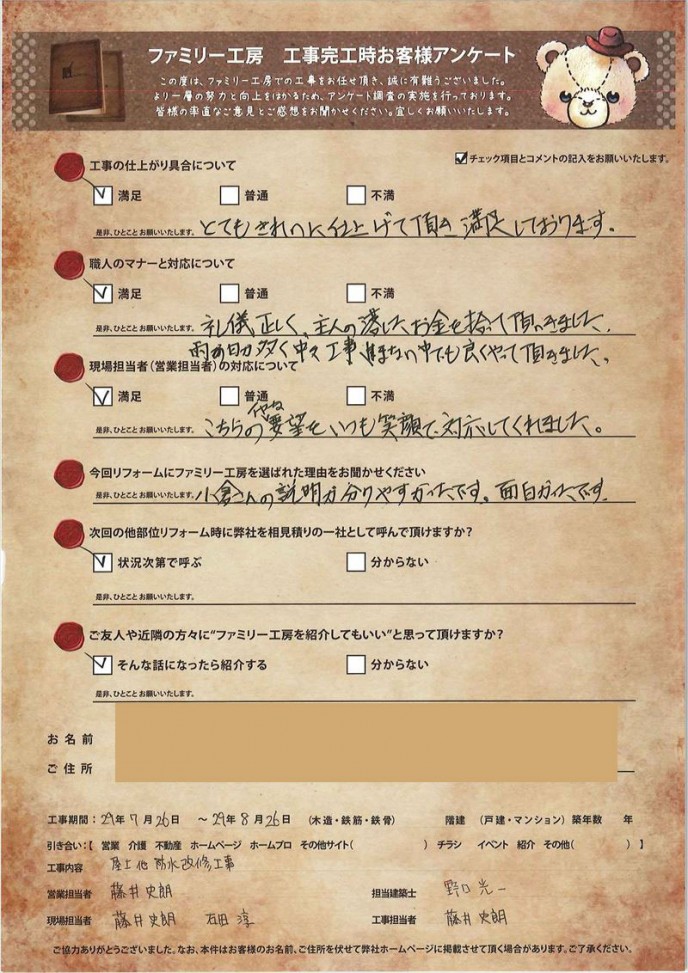 ファミリー工房 工事完工時お客様アンケート
この度は、ファミリー工房での工事をお任せ頂き、誠に有難うございました。
より一層の努力と向上をはかるため、アンケート調査の実施を行っております。
皆様の率直なご意見とご感想をお聞かせください。宜しくお願いいたします。
☑チェック項目とコメントの記入をお願いいたします。
工事の仕上がり具合について
☑満足 □普通 □不満
是非、ひとこと お願いいたします。 とてもきれいに仕上げて頂き満足しております。
職人のマナーと対応について
☑満足 □普通 □不満
是非、ひとこと お願いいたします。 礼儀正しく、主人の落したお金を拾って頂いきました。
雨の日が多く中々工事進まない中でも良くやって頂きました。
現場担当者(営業担当者)の対応について
☑満足 □普通 □不満
是非、ひとこと お願いいたします。 こちらの要望をいつも笑顔で対応してくれました。
今回リフォームにファミリー工房を選ばれた理由をお聞かせください
是非、ひとこと お願いいたします。 小倉さんの説明が分りやすかったです。面白かったです。
次回の他部位リフォーム時に弊社を相見積りの一社として呼んで頂けますか?
☑状況次第で呼ぶ □分からない
是非、ひとこと お願いいたします。
ご友人や近隣の方々に"ファミリー工房を紹介してもいい"と思って頂けますか?
☑そんな話になったら紹介する □分からない
是非、ひとこと お願いいたします。
お名前
ご住所
工事期間:29年7月26日 ～29年8月26日 (木造・鉄筋・鉄骨) 階建 (戸建・マンション) 築年数 年
引き合い:【 営業 介護 不動産 ホームページ ホームプロ その他サイト( ) チラシ イベント 紹介 その他( ) 】
工事内容 屋上他防水改修工事
営業担当者 藤井史朗 担当建築士 野口光一
現場担当者 藤井史朗 石田淳 工事担当者 藤井史朗
ご協力ありがとうございました。なお、本件はお客様のお名前、ご住所を伏せて弊社ホームページに掲載させて頂く場合があります。ご了承ください。